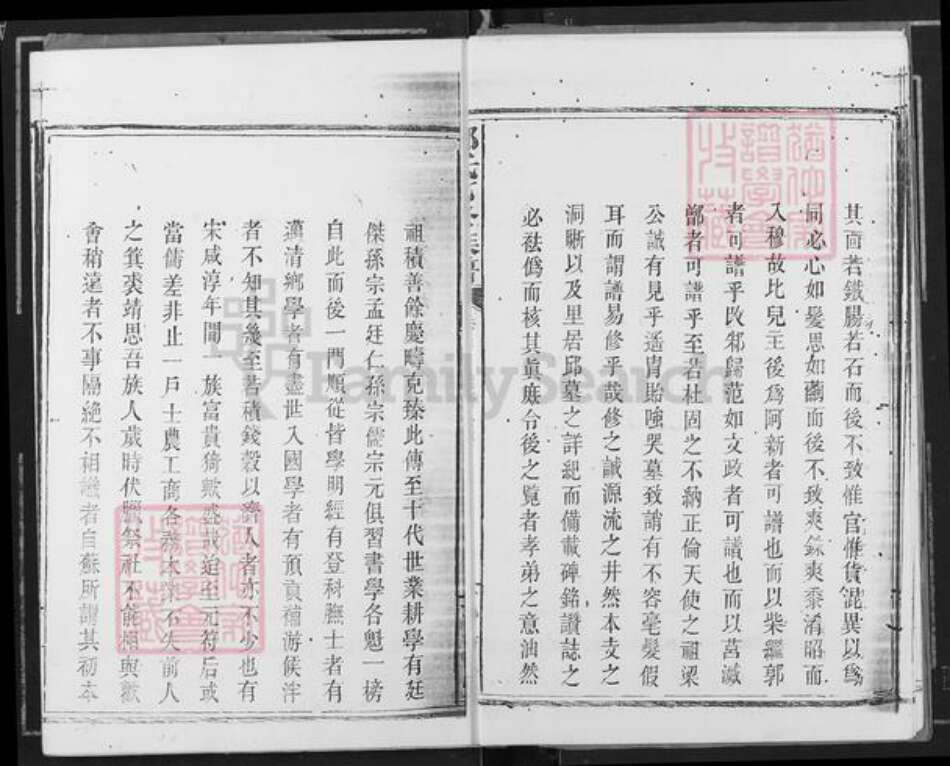 其面若鐵腸若石而後不致惟官惟貨混異以爲
同必心如髮思如繭而後不致爽銖爽黍淆昭而
入穆故比兒王後爲阿新者可譜也而以柴繼郭
者可譜乎改邾歸范如文政者可譜也而以莒滅
鄫者可譜乎至若杜固之不納正倫天使之祖梁
公誠有見乎遙冑貽嗤哭墓致誚有不容毫髮假
耳而謂譜易修乎哉修之誠源流之井然本支之
洞晰以及里居邱墓之詳紀而備載碑銘讚誌之
必祛僞而核其眞庶令後之覽者孝弟之意油然
祖積善餘慶疇克臻此傳至十代世業耕學有廷
傑孫宗孟廷仁孫宗儒宗元俱習書學各魁一榜
自此而後一門順從皆學明經有登科膴士者有
薦清鄉學者有盡世入國學者有預貢補游候泮
者不知其幾至若積錢穀以濟人者亦不少也有
宋咸淳年間一族富貴猗歟盛哉迨至元符后或
當儒差非止一戶士農工商各務本業不失前人
之箕裘靖思吾族人歲時伏臘祭社不能相與歡
會稍遠者不事隔絶不相識者自蘇所謂其初本
FamilySearch